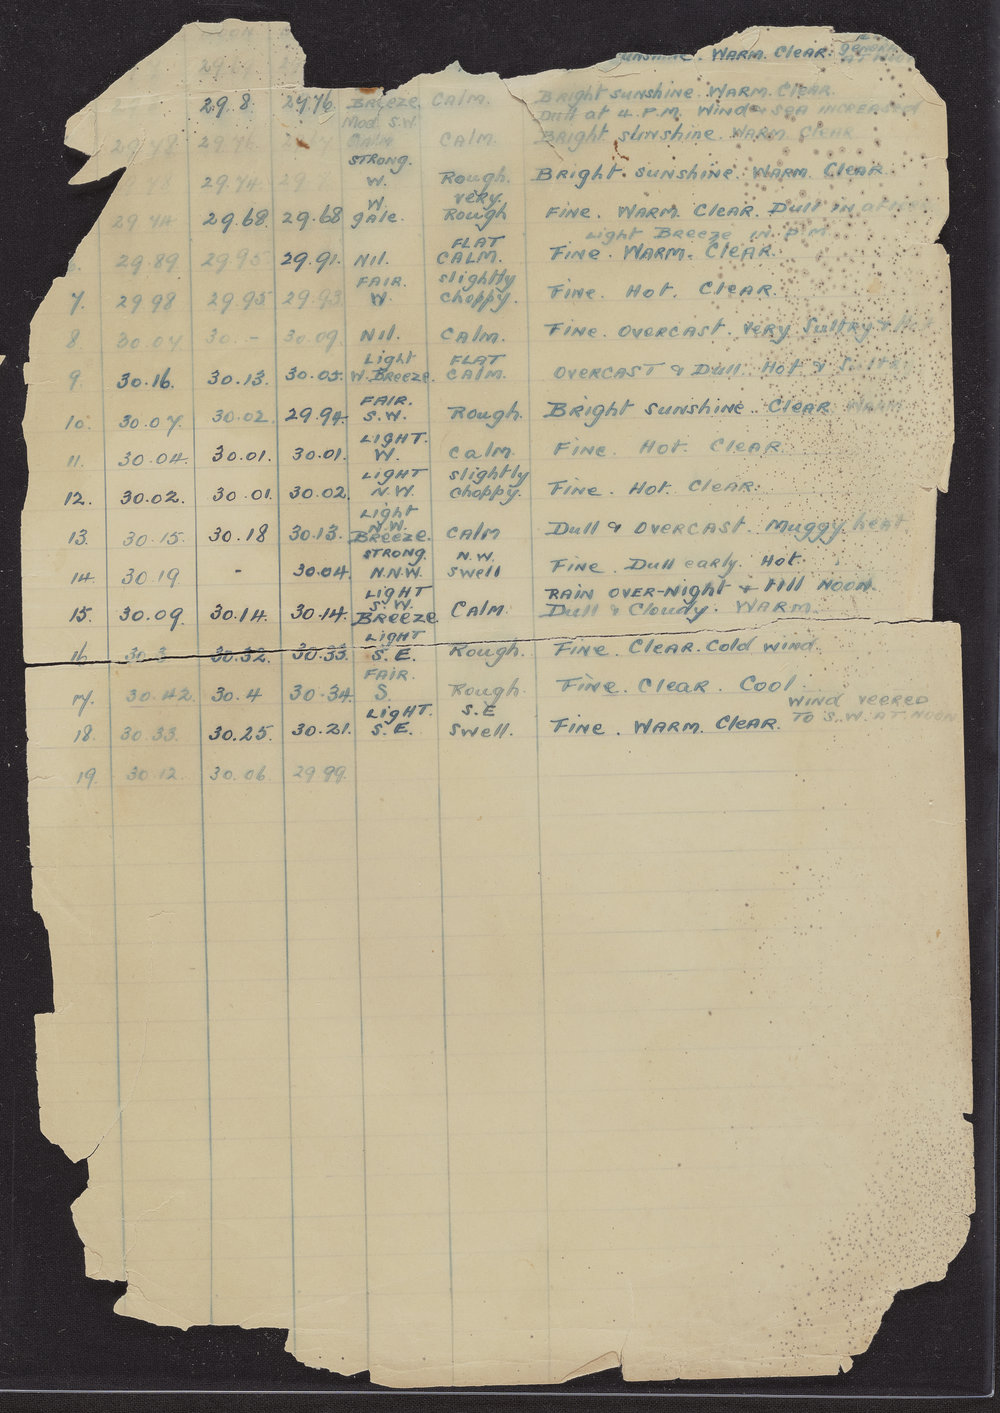 NOON
29.
sunshine. WARM. Clear.
29.8. 29.76. Breeze Calm. Bright sunshine. WARM. Clear.
Dull at 4 P.M. Wind & sea INCREASED
Mod. S.W.
29.78 29.76. Calm Calm. Bright sunshine. WARM. Clear
STRONG.
29.74. 29. W. Rough. Bright. sunshine. WARM. Clear.
W. very.
29.74 29.68. 29.68 gale. Rough Fine. WARM. Clear. Dull in
Light Breeze in P.M.
FLAT
6. 29.89 29.95 29.91. Nil. CALM. Fine. WARM. Clear.
FAIR. slightly
7. 29.98 29.95 29.93. W. choppy. Fine. Hot. Clear.
8. 30.04 30. - 30.09. Nil. Calm. Fine. OVERCAST. very Sultry & Hot
Light FLAT
9. 30.16. 30.13. 30.05. W. Breeze. CALM. OVERCAST & Dull. Hot & Sultry
FAIR.
10. 30.07. 30.02. 29.94. S.W. Rough. Bright sunshine. Clear WARM
LIGHT.
11. 30.04. 30.01. 30.01. W. Calm. Fine. Hot. Clear.
LIGHT slightly
12. 30.02. 30.01. 30.02. N.W. choppy. Fine. Hot. Clear.
Light
N.W.
13. 30.15. 30.18 30.13. Breeze. CALM Dull & OVERCAST. Muggy heat
STRONG. N.W.
14. 30.19 - 30.04. N.N.W. swell Fine. Dull early. Hot.
LIGHT RAIN OVER-Night & till NOON.
S.W.
15. 30.09. 30.14. 30.14. Breeze. Calm. Dull & Cloudy. WARM.
LIGHT
16. 30.3 30.32. 30.33. S.E. Rough. Fine. Clear. Cold wind.
FAIR.
17. 30.42. 30.4 30.34. S. Rough. Fine. Clear. Cool.
WIND VEERED
LIGHT. S.E TO S.W. AT NOON
18. 30.33. 30.25. 30.21. S.E. Swell. Fine. WARM. Clear.
19. 30.12. 30.06. 29.99.